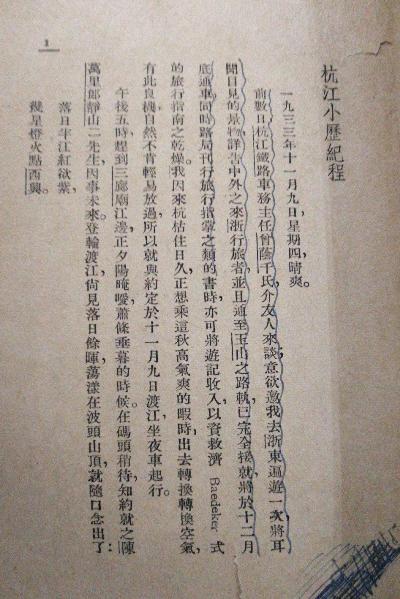 杭江小歷紀程
一九三三年十一月九日,星期四,晴爽。
前數日杭江鐵路車務主任曾蔭千氏,介友人來談,意欲邀我去浙東遍遊一次,將耳
聞目見的景物,詳告中外之來浙行旅者,並且通至玉山之路軌,已完全接就,將於十二月
底通車,同時路局刊行旅行指掌之類的書時,亦可將遊記收入,以資救濟 Baedeker 式
的旅行指南之乾燥。我因來杭枯住日久,正想乘這秋高氣爽的暇時,出去轉換轉換空氣,
有此良機,自然不肯輕易放過,所以就與約定於十一月九日渡江,坐夜車起行。
午後五時,趕到三廊廟江邊,正夕陽晻曖,蕭條垂暮的時候。在碼頭稍待,知約就之陳
萬里郎靜山二先生,因事未來。登輪渡江,尚見落日餘暉,蕩漾在波頭山頂,就隨口念出了:
落日半江紅欲紫,
幾星燈火點西興。
1